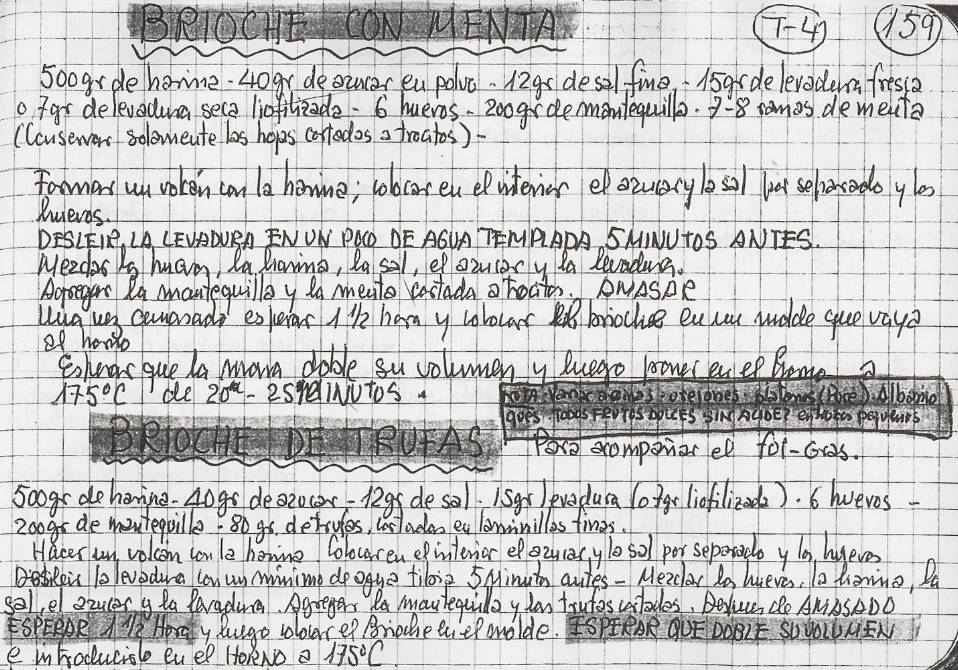 BRIOCHE CON MENTA T-4 159
500gr de harina - 40gr de azucar en polvo - 12gr de sal fina - 15gr de levadura fresca
o 7gr de levadura seca liofilizada - 6 huevos - 200gr de mantequilla - 7-8 ramas de menta
(Conservar solamente las hojas cortadas a trocitos) -
Formar un volcán con la harina; colocar en el interior el azucar y la sal por separado y los
huevos.
DESLEIR LA LEVADURA EN UN POCO DE AGUA TEMPLADA 5 MINUTOS ANTES.
Mezclar los huevos, la harina, la sal, el azucar y la levadura.
Agregar la mantequilla y la menta cortada a trocitos. AMASAR
Una vez amasado esperar 1 1/2 hora y colocar brioche en un molde que vaya
al horno
Esperar que la masa doble su volumen y luego poner en el horno a
175ºC de 20 - 25 MINUTOS -
NOTA orejones platanos (Puré) Albarico
ques TODOS FRUTOS DULCES SIN ACIDEZ en trozos pequeños
BRIOCHE DE TRUFAS
Para acompañar el foi-Gras.
500gr de harina - 40gr de azucar - 12gr de sal - 15gr levadura (o 7gr liofilizada) - 6 huevos -
200gr de mantequilla - 80 gr. de trufas, cortadas en laminillas finas.
Hacer un volcán con la harina Colocar en el interior el azucar y la sal por separado y los huevos
Desleir la levadura con un mínimo de agua tibia 5 Minutos antes - Mezclar los huevos, la harina, la
sal, el azucar y la levadura. Agregar la mantequilla y las trufas cortadas. Despues de AMASADO
ESPERAR 1 1/2 Hora y luego colocar el Brioche en el molde. ESPERAR QUE DOBLE SU VOLUMEN
e introducirlo en el HORNO a 175ºC